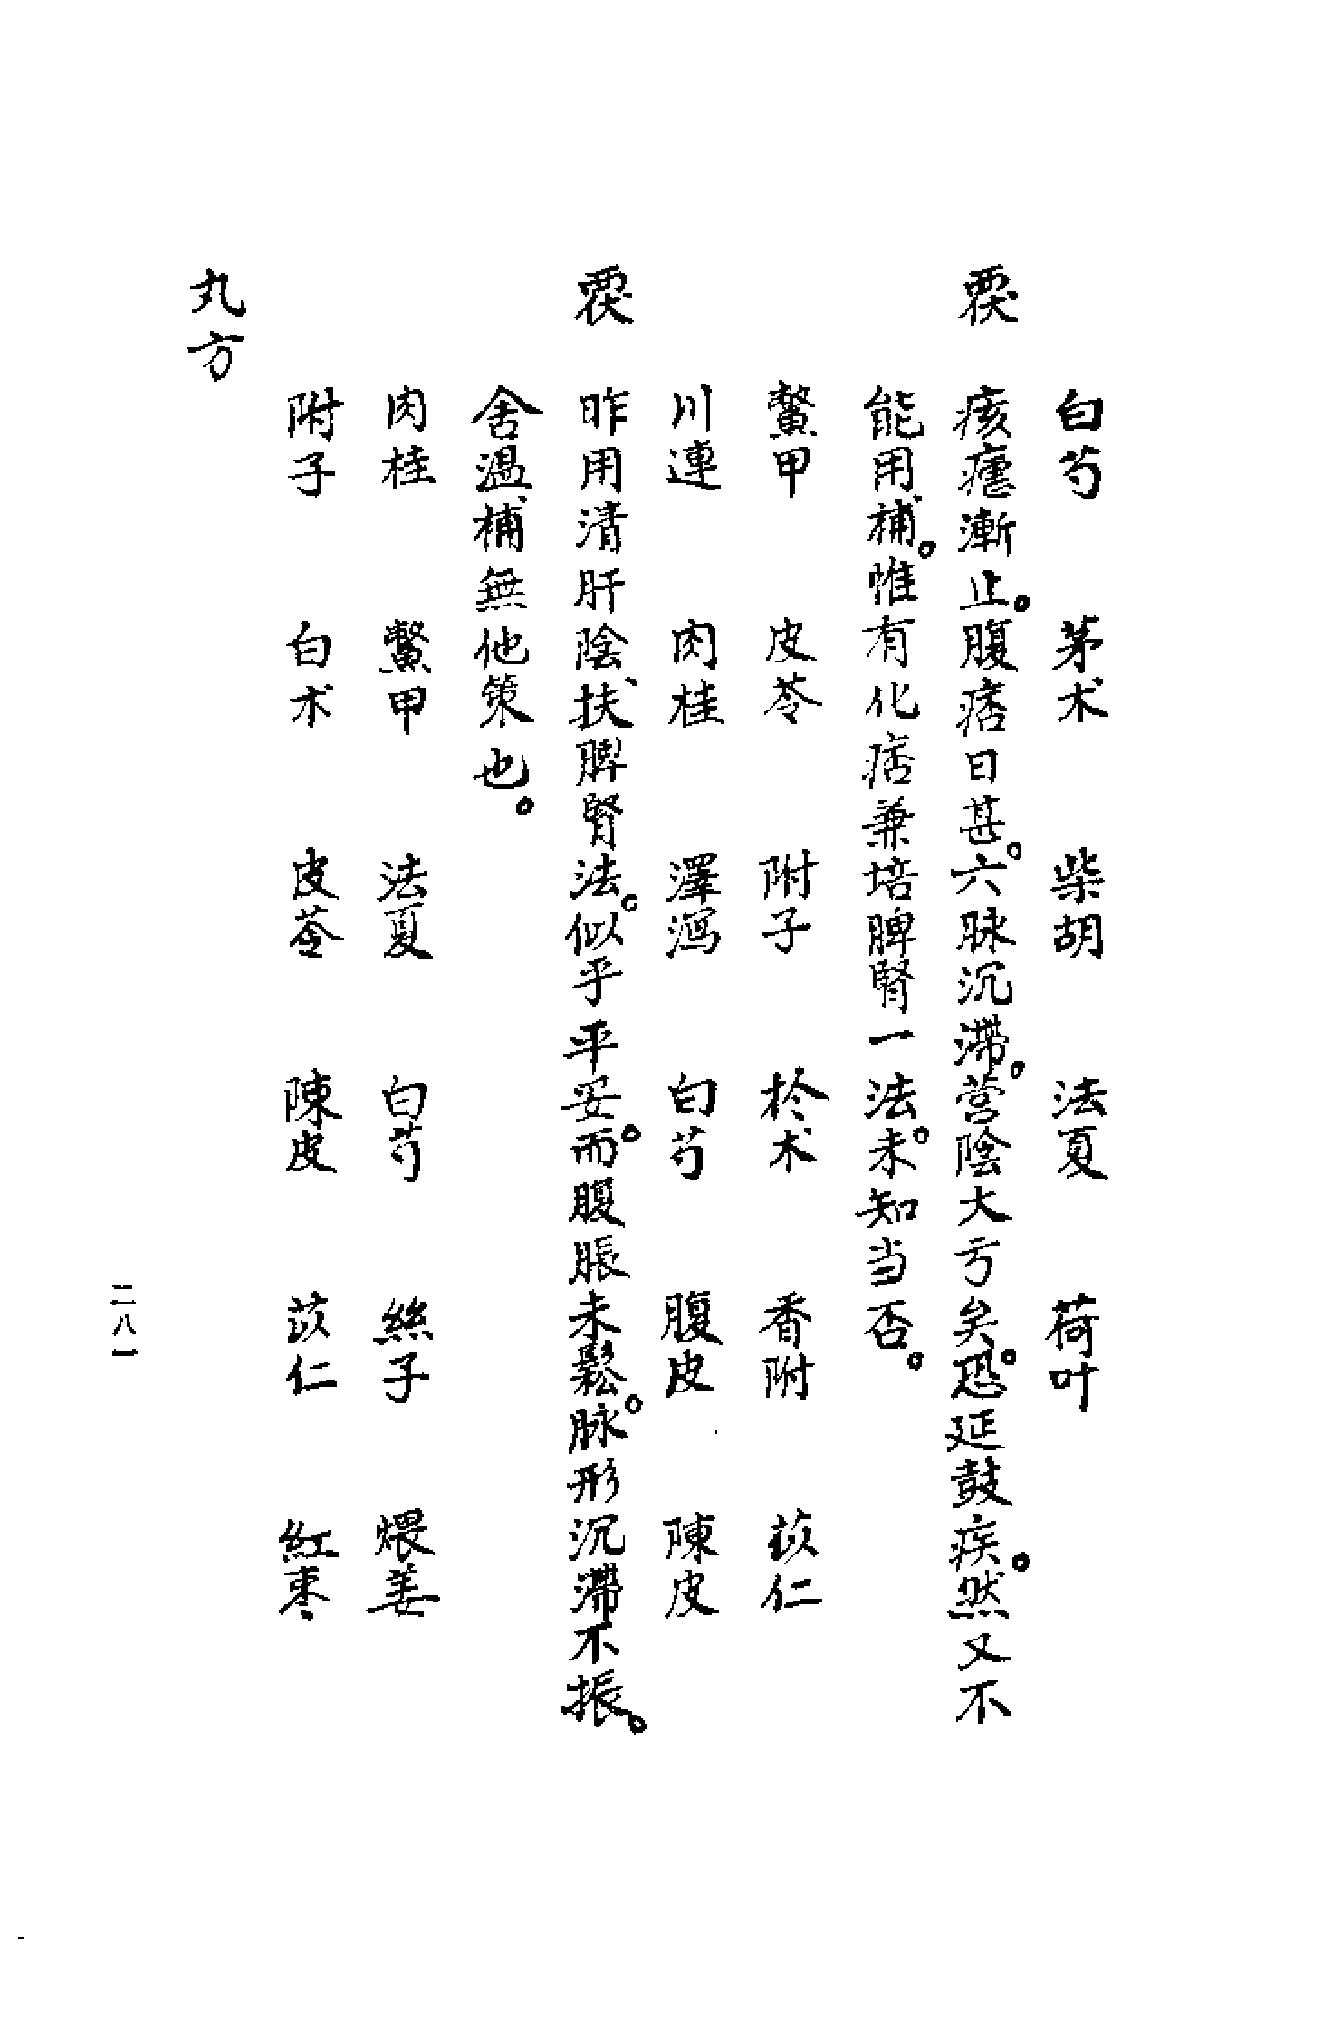 白芍 茅术 柴胡 法夏 荷叶
覆 痎瘧漸止。腹痞日甚。六脉沉滯。營陰大亏矣。恐延鼓疾。然又不
能用補。惟有化痞兼培脾腎一法。未知当否。
鱉甲 皮苓 附子 於术 香附 苡仁
川連 肉桂 澤瀉 白芍 腹皮 陳皮
覆 昨用清肝陰、扶脾腎法。似乎平妥。而腹脹未鬆。脉形沉滯不振。
舍溫補無他策也。
肉桂 鱉甲 法夏 白芍 絲子 煨姜
附子 白术 皮苓 陳皮 苡仁 紅棗
丸方
二八一